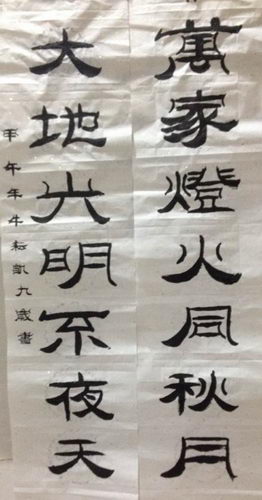 萬家燈火同秋月
大地光明不夜天
甲午年牛耘凱九歲書